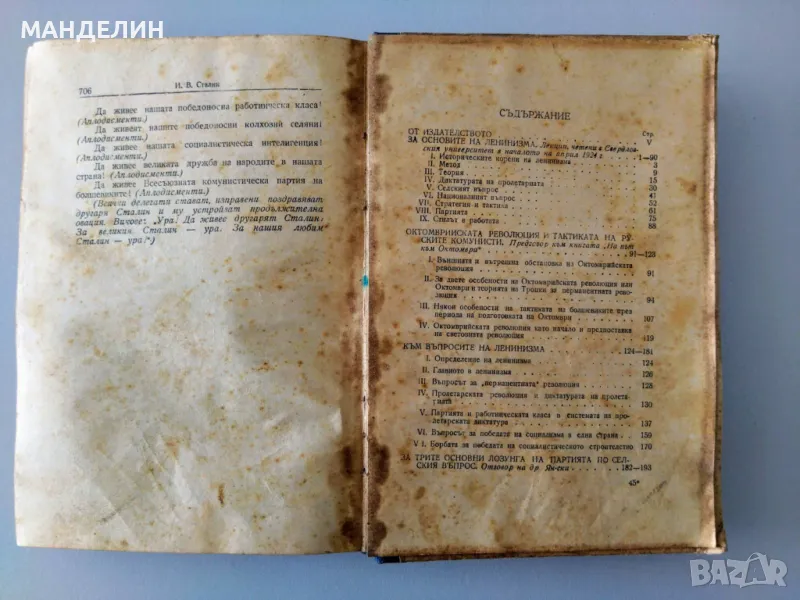 МАНДЕЛИН
706 И. В. Сталин
Да живее нашата победоносна работническа класа!
(Аплодисменти.)
Да живеят нашите победоносни колхозни селяни!
(Аплодисменти.)
Да живее нашата социалистическа интелигенция!
(Аплодисменти.)
Да живее великата дружба на народите в нашата
страна! (Аплодисменти.)
Да живее Всесъюзната комунистическа партия на
болшевиките! (Аплодисменти.)
(Всички делегати стават, изправени поздравяват
другаря Сталин и му устройват продължителна
овация. Викове: „Ура. Да живее другарят Сталин!
За великия Сталин — ура. За нашия любим
Сталин — ура!“)
СЪДЪРЖАНИЕ
Стр.
ОТ ИЗДАТЕЛСТВОТО V
ЗА ОСНОВИТЕ НА ЛЕНИНИЗМА. Лекции, четени в Свердлов-
ския университет в началото на април 1924 г. 1—90
I. Историческите корени на ленинизма 3
II. Метод 9
III. Теория 15
IV. Диктатурата на пролетариата 30
V. Селският въпрос 41
VI. Националният въпрос 52
VII. Стратегия и тактика 61
VIII. Партията 75
IX. Стилът в работата 88
ОКТОМВРИЙСКАТА РЕВОЛЮЦИЯ И ТАКТИКАТА НА РУС-
КИТЕ КОМУНИСТИ. Предговор към книгата „На път
към Октомври“ 91—123
I. Външната и вътрешна обстановка на Октомврийската
революция 91
II. За двете особености на Октомврийската революция или
Октомври и теорията на Троцки за перманентната рево-
люция 94
III. Някои особености на тактиката на болшевиките през
периода на подготовката на Октомври 107
IV. Октомврийската революция като начало и предпоставка
на световната революция 119
КЪМ ВЪПРОСИТЕ НА ЛЕНИНИЗМА 124—181
I. Определение на ленинизма 124
II. Главното в ленинизма 126
III. Въпросът за „перманентната“ революция 128
IV. Пролетарската революция и диктатурата на пролета-
риата 130
V. Партията и работническата класа в системата на про-
летарската диктатура 137
VI. Въпросът за победата на социализма в една страна 159
VII. Борбата за победата на социалистическото строителство 170
ЗА ТРИТЕ ОСНОВНИ ЛОЗУНГА НА ПАРТИЯТА ПО СЕЛ-
СКИЯ ВЪПРОС. Отговор на др. Ян-ски 182—193
45*
BAZAR